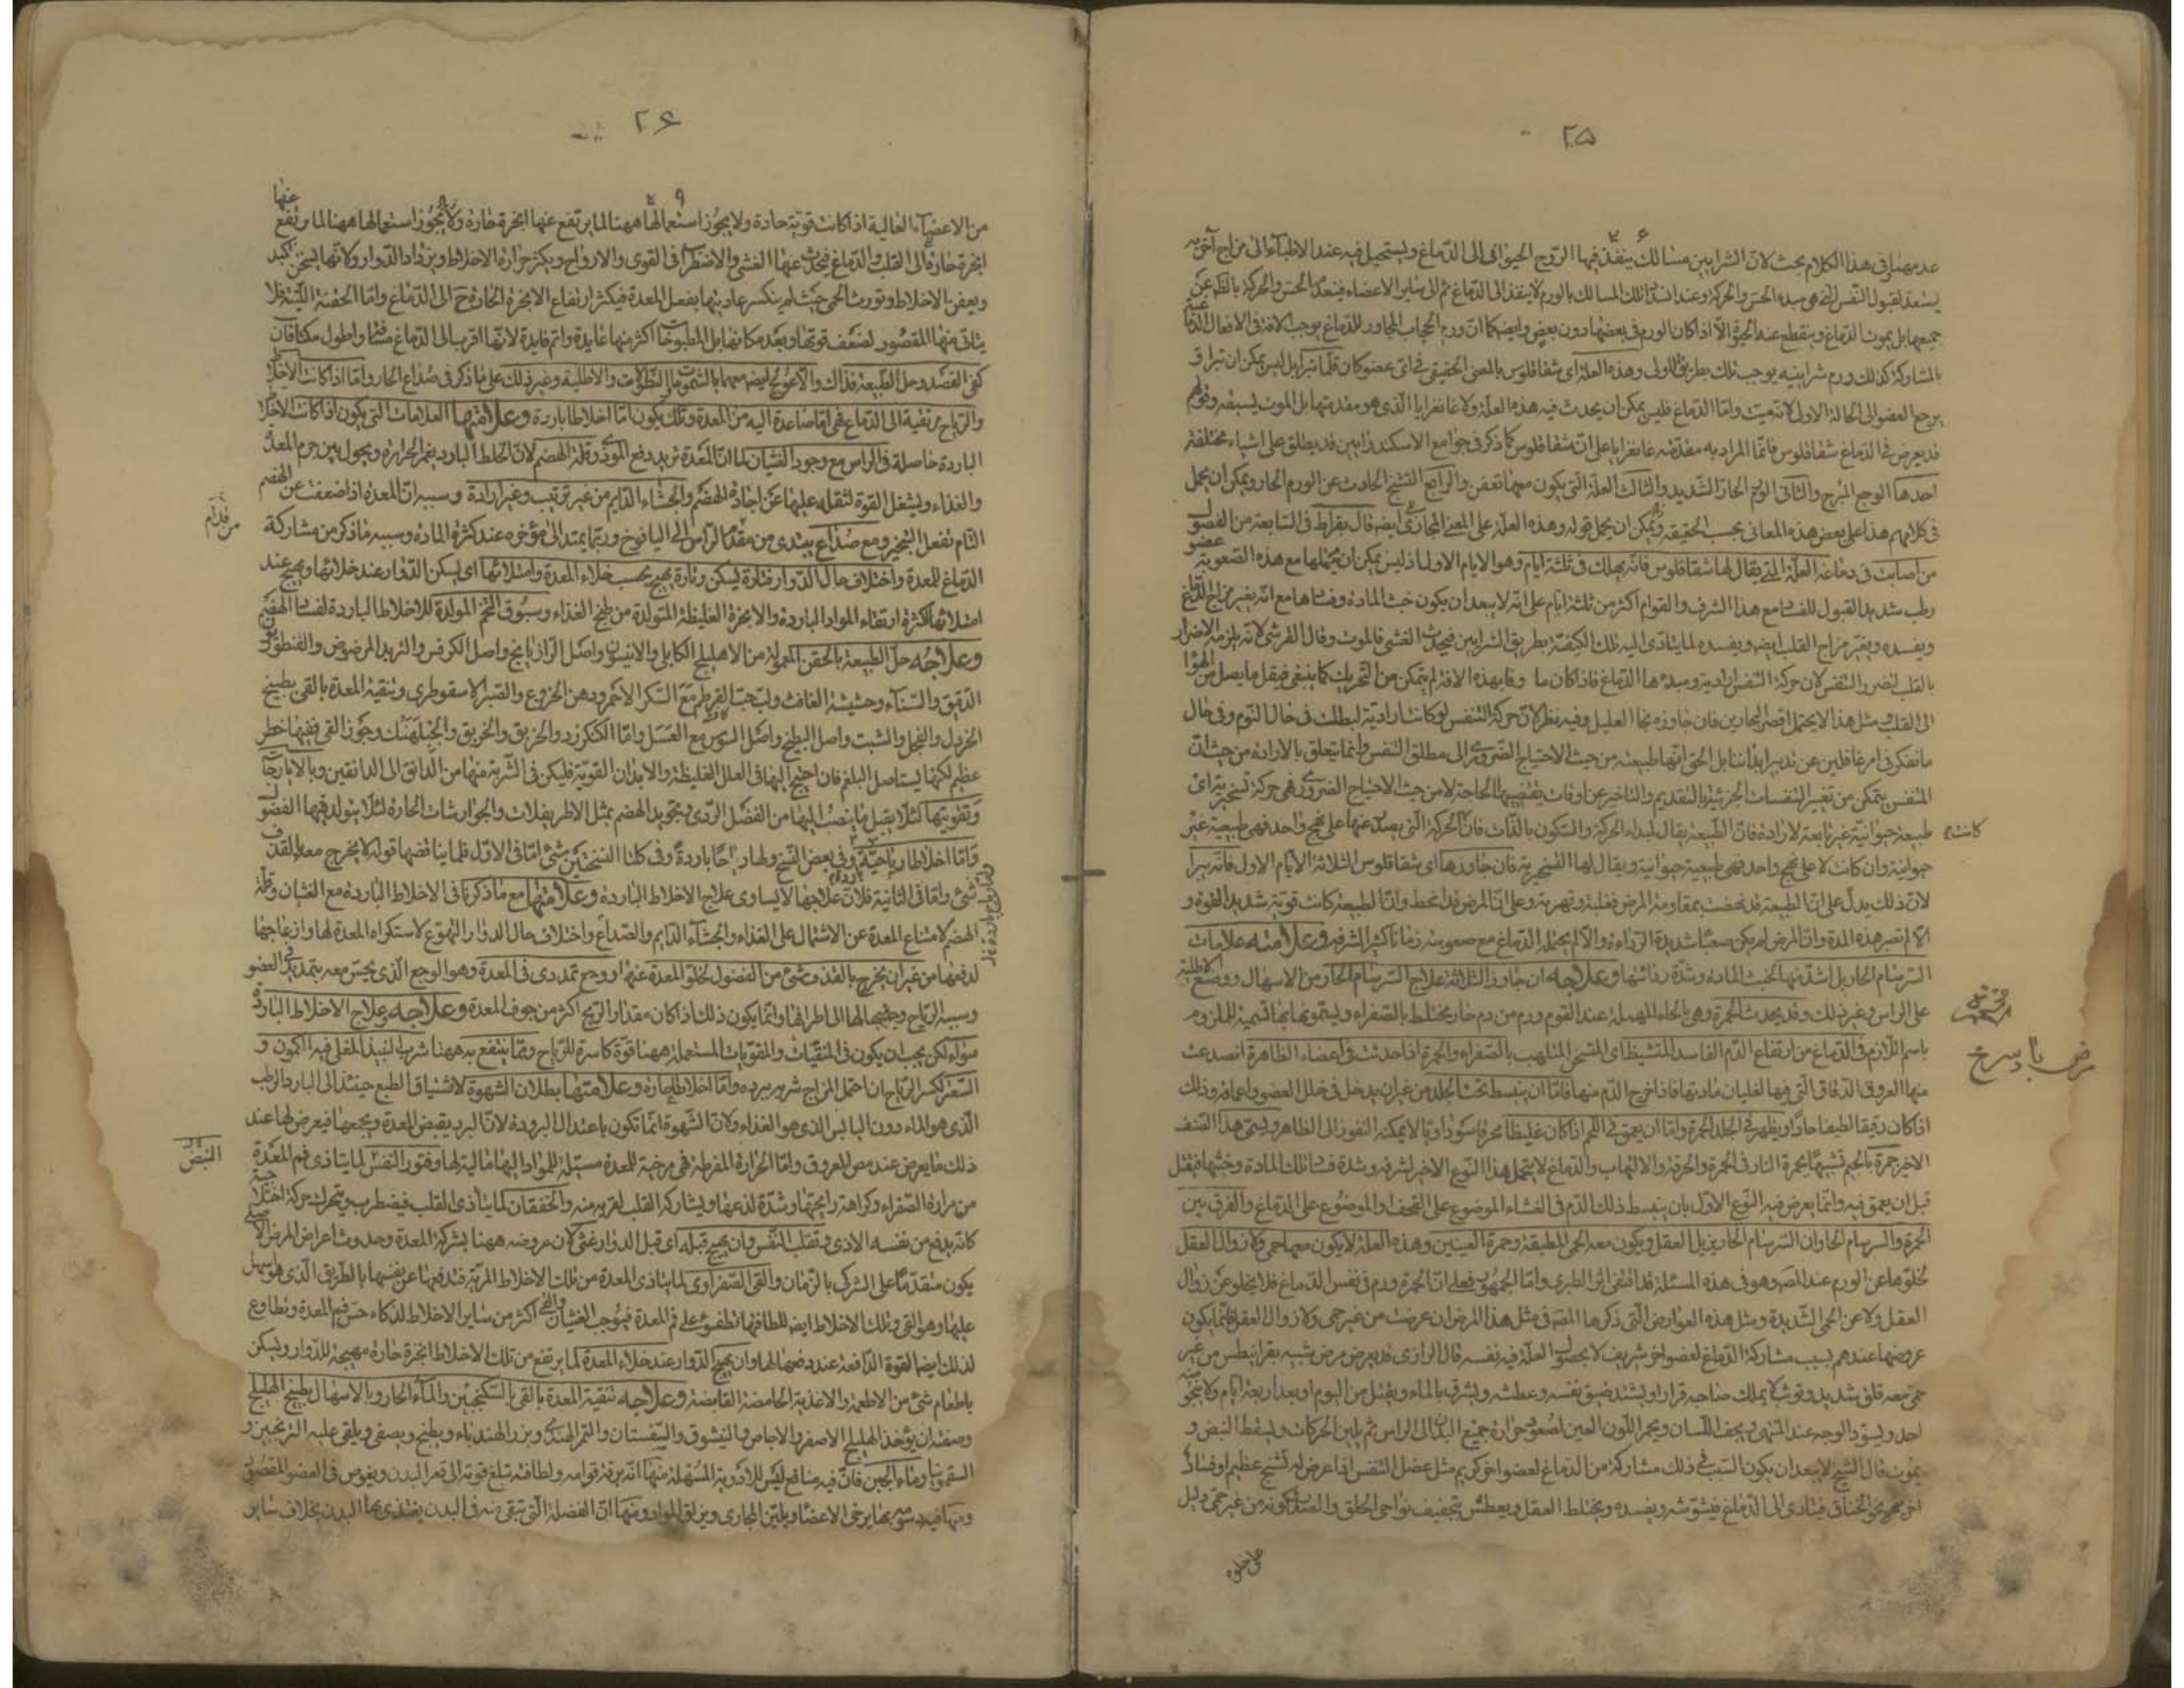 ٢٥
عدمهما وفى هذا الكلام بحث لان الشرايين مسالك ينفذ فيها الروح الحيوانى الى الدماغ ويستحيل فيه عند الاطباء الى مزاج آخر به
يستعد لقبول النفس التى هى مبدء الحس والحركة وعند انسداد تلك المسالك بالورم لا ينفذ الى الدماغ ثم الى سائر الاعضاء فينعدم الحس والحركة بالكلية عن
جميعها بل يموت الدماغ وينقطع عنه الحيوة الا اذا كان الورم فى بعضها دون بعض وايضا كما ان ورم الحجاب المجاور للدماغ يوجب الآفة فى الافعال
بالمشاركة كذلك ورم شرايينه يوجب تلك بطريق الاولى وهذه العلة اى شقاقلوس بالمعنى الحقيقى فى اى عضو كان قلما تبرأ بل ليس يمكن ان تبرأ ق
يرجع العضو الى الحالة الاولى لانه ميت واما الدماغ فليس يمكن ان يحدث فيه هذه العلة ولا غانغرايا الذى هو مقدمتها بل الموت يسبقه وقولهم
قد يعرض فى الدماغ شقاقلوس فانما المراد به مقدمته غانغرايا على ان شقاقلوس كما ذكر فى جوامع الاسكندرانيين قد يطلق على اشياء مختلفة
احدها الوجع المبرح والثانى الورم الحار الشديد والثالث العلة التى يكون معها تعفن والرابع التشنج الحادث عن الورم الحار ويمكن ان يحمل
فى كلامهم هذا على بعض هذه المعانى بحسب الحقيقة ويمكن ان يحمل قوله وهذه العلة على المعنى المجازى ايضا قال بقراط فى السابعة من الفصول
من اصابت فى دماغه العلة التى يقال لها شقاقلوس فانه يهلك فى ثلثة ايام وهو الايام الاول اذ ليس يمكن ان يحملها مع هذه الصعوبة عضو
رطب شديد القبول للفساد مع هذا الشرف والقوام اكثر من ثلثة ايام على انه لا يبعد ان يكون خبث المادة وفسادها مع انه يغير مزاج الدماغ
ويفسده ويغير مزاج القلب ايضا ويفسده لما يتادى اليه تلك الكيفية بطريق الشرايين فيحدث الغشى فالموت وقال القرشى لانه يلزمه الاضرار
بالقلب لضرر التنفس لان حركة التنفس ارادية ومبدءها الدماغ فاذا كان ما وفا بهذه الآفة لم يتمكن من التحريك كما ينبغى فيقل ما يصل من الهواء
الى القلب ومثل هذا لا يحتمل اقصر البحارين فان جاوزه نجا العليل وفيه نظر لان حركة التنفس لو كانت ارادية لبطلت فى حال النوم وفى حال
ما نتفكر فى امر غافلين عن تدبير ابداننا بل الحق انها طبيعية من حيث الاحتياج الضرورى الى مطلق التنفس وانما يتعلق بالارادة من حيث ان
المتنفس يتمكن من تغيير التنفسات الجزئية بالتقديم والتاخير عن اوقات يقتضيها الحاجة لا من حيث الاحتياج الضرورى فهى حركة تسخيرية اى
طبيعية حيوانية غير تابعة لارادة فان الطبيعة يقال لمبداء الحركة والسكون بالذات فان الحركة التى يصدر عنها على نهج واحد فهى طبيعية غير
كانت
حيوانية وان كانت لا على نهج واحد فهى طبيعية حيوانية ويقال لها التسخيرية فان جاوزها اى شقاقلوس الثلاثة الايام الاول فانه يبرأ
لان ذلك يدل على ان الطبيعة قد نهضت بمقاومة المرض فغلبته وقهرته وعلى ان المرض قد انحط وان الطبيعة كانت قوية شديدة القوة و
الا لم تصبر هذه المدة وان المرض لم يكن صعبا شديد الرداءة والا لم يحتمله الدماغ مع صعوبته زمانا كثيرا لشرفه وعلامته علامات
السرسام الحار بل اشد منها لخبث المادة وشدة رداءتها وعلاجه ان جاوز الثلاثة علاج السرسام الحار من الاسهال ووضع الاطلية
على الراس وغير ذلك وقد يحدث الحمرة وهى بالحاء المهملة عند القوم ورم من دم حار مختلط بالصفراء ويسمونها بها تسمية للملزوم
باسم اللازم فى الدماغ من ارتفاع الدم الفاسد المتشيط اى المتسخن المتلهب بالصفراء والحمرة اذا حدثت فى اعضاء الظاهرة انصدعت
مرض باد سرخ
منها العروق الدقاق التى فيها الغليان مادتها فاذا خرج الدم منها فاما ان ينبسط تحت الجلد من غير ان يدخل فى خلل العضو واعماقه وذلك
اذا كان رقيقا لطيفا حادا ويظهر فى الجلد الحمرة واما ان يعمق فى اللحم اذا كان غليظا محرقا سوداويا لا يمكنه النفوذ الى الظاهر ويسمى هذا الصنف
الاخير جمرة بالجيم تشبيها بجمرة النار فى الحمرة والحرقة والالتهاب والدماغ لا يتحمل هذا النوع الاخير لشرفه وشدة فساد تلك المادة وخبثها فيقتل
قبل ان يعمق فيه وانما يعرض فيه النوع الاول بان ينبسط ذلك الدم فى الغشاء الموضوع على القحف او الموضوع على الدماغ والفرق بين
الحمرة والسرسام الحار ان السرسام الحار يزيل العقل ويكون معه الحمى المطبقة وحمرة العينين وهذه العلة لا يكون معها حمى ولا زوال العقل
لخلوها عن الورم عند المص وهو فى هذه المسئلة قد اقتفى اثر الطبرى واما الجمهور فعلى ان الحمرة ورم فى نفس الدماغ فلا يخلو عن زوال
العقل ولا عن الحمى الشديدة ومثل هذه العوارض التى ذكرها المص فى مثل هذا المرض ان عرضت من غير حمى ولا زوال العقل فانما يكون
عروضها عندهم بسبب مشاركة الدماغ لعضو آخر شريف لا بحصول العلة فيه نفسه قال الرازى قد يعرض مرض شبيه بقرانيطس من غير
حمى معه قلق شديد وتوثب لا يملك صاحبه قرارا ويشتد ضيق نفسه وعطشه ويشرق بالماء ويقتل من اليوم او بعد اربعة ايام ولا ينجو
احد ويسود الوجه عند المنتهى ويجف اللسان ويحمر اللون العين لصعود حرارة جميع البدن الى الراس ثم يلين الحركات ويسقط النبض و
يموت قال الشيخ لا يبعد ان يكون السبب فى ذلك مشاركة من الدماغ لعضو آخر كريم مثل عضل التنفس اذا عرض له تشنج عظيم او فساد
آخر نحو الخناق فيتادى الى الدماغ فيشوشه ويفسده ويختلط العقل ويعطش بتجفيف نواحى الحلق والصدر لكونه من غير حمى دليل
على خلوه
٢٦
من الاعضاء العالية اذا كانت قوية حادة ولا يجوز استعمالها ههنا لما يرتفع عنها ابخرة حارة ولا يجوز استعمالها ههنا لما يرتفع عنها
ابخرة حارة الى القلب والدماغ فيحدث عنها الغشى والاضطراب فى القوى والارواح ويكثر حرارة الاخلاط ويزداد الدوار ولانها يسخن الكبد
ويعفن الاخلاط وتورث الحمى حيث لم ينكسر عاديتها بفعل المعدة فيكثر ارتفاع الابخرة الحارة ح الى الدماغ واما الحقنة اللينة فلا
يتاتى منها المقصود لضعف قوتها وبعد مكانها بل المطبوخات اكثر منها عايدة واتم فايدة لانها اقرب الى الدماغ مسافة واطول مكثا فان
كفى الفصد وحل الطبيعة فذاك والا عولج ايضا معهما بالشمومات والنطولات والاطلية وغير ذلك على ما ذكر فى صداع الحار واما اذا كانت الاخلاط
والرياح مرتقية الى الدماغ فهى اما صاعدة اليه من المعدة وتلك يكون اما اخلاطا باردة وعلامتها العلامات التى يكون اذا كانت الاخلاط
الباردة حاصلة فى الراس مع وجود الغثيان لما ان المعدة تريد دفع الموذى وقلة الهضم لان الخلط البارد يغمر الحرارة ويحول بين جرم المعدة
والغذاء ويشغل القوة لثقله عليها عن اجادة الهضم والجشاء الدايم من غير ترتيب وغير ارادة وسببه ان المعدة اذا ضعفت عن الهضم
التام تفعل التبخير ومع صداع يبتدى من مقدم الراس الى اليافوخ وربما يمتد الى مؤخره عند كثرة المادة وسببه ما ذكر من مشاركة
من قدام
الدماغ للمعدة واختلاف حال الدوار فتارة يسكن وتارة يهيج بحسب خلاء المعدة وامتلائها اى يسكن الدوار عند خلائها ويهيج عند
امتلائها لكثرة ارتقاء المواد الباردة والابخرة الغليظة المتولدة من طبخ الغذاء وسبوق التخم المولدة للاخلاط الباردة لفساد الهضم
وعلاجه حل الطبيعة بالحقن المعمولة من الاهليلج الكابلى والانيسون واصل الرازيانج واصل الكرفس والتربد المرضوض والقنطوريون
الدقيق والسناء وحشيشة الغافث ولب حب القرطم مع السكر الاحمر ودهن الخروع والصبر الاسقوطرى وتنقية المعدة بالقى بطبيخ
الخردل والفجل والشبت واصل البطيخ واصل السوس مع العسل واما الكنكرزد والخربق والجبلهنك وجوز القى ففيها خطر
عظيم لكنها يستاصل البلغم فان احتيج اليها فى العلل الغليظة والابدان القوية فليكن فى الشربة منها من الدانق الى الدانقين وبالايارجات
وتقويتها لئلا يقبل ما ينصب اليها من الفضل الردى وتجويد الهضم بمثل الاطريفلات والجوارشات الحارة لئلا يتولد فيها الفضول
واما اخلاطا رياحية وفى بعض النسخ ولها رياحا باردة وفى كلتا النسختين شئ اما فى الاول فلما يناقضها قوله لا يخرج معه بالقذف
شئ واما فى الثانية فلان علاجها لا يساوى علاج الاخلاط الباردة وعلامتها مع ما ذكرنا فى الاخلاط الباردة مع الغثيان وقلة
الهضم لامتناع المعدة عن الاشتمال على الغذاء والجشاء الدايم والصداع واختلاف حال الدوار التهوع لاستكراه المعدة لها وازعاجها
لدفعها من غير ان يخرج بالقذف شئ من الفضول لخلو المعدة عنها ووجع تمددى فى المعدة وهو الوجع الذى يحس معه بتمدد فى العضو
وسببه الرياح وجذبها لها الى اطرافها وانما يكون ذلك اذا كان مقدار الريح اكثر من جوف المعدة وعلاجه وعلاج الاخلاط الباردة
سواء لكن يجب ان يكون فى المنقيات والمقويات المستعملة ههنا قوة كاسرة للرياح ومما ينتفع به ههنا شرب النبيذ المغلى فيه الكمون و
السعتر لكسر الرياح ان احتمل المزاج شربه ببرده واما اخلاطا حارة وعلامتها بطلان الشهوة لاشتياق الطبع حينئذ الى البارد الرطب
الذى هو الماء دون اليابس الذى هو الغذاء ولان الشهوة انما تكون باعتدال البرودة لان البرد يقبض المعدة ويجمعها فيعرض لها عند
ذلك ما يعرض عند مص العروق واما الحرارة المفرطة فهى مرخية للمعدة مسيلة للمواد اليها مالية لها وفتور النفس لما يتاذى فم المعدة
النبض
من مرارة الصفراء وكراهة رايحتها وشدة لذعها ويشاركه القلب لقربه منه والخفقان لما يتاذى القلب فيضطرب ويتحرك حركة اختلاجية
كانه يدفع من نفسه الاذى وتقلب النفس وان يهيج قبله اى قبل الدوار غثى لان عروضه ههنا بشركة المعدة وحدوث اعراض المرض الاصلى
يكون متقدما على الشرك بالزمان والقى الصفراوى لما يتاذى المعدة من تلك الاخلاط المرية فتدفعها عن نفسها بالطريق الذى هو اسهل
عليها وهو القى وتلك الاخلاط ايضا للطافتها تطفو على فم المعدة فيوجب الغثيان والقى اكثر من سائر الاخلاط لذكاء حس فم المعدة وتطاوع
لذلك ايضا القوة الدافعة عند دفعها لها وان يهيج الدوار عند خلاء المعدة لما يرتفع من تلك الاخلاط ابخرة حارة مهيجة للدوار ويسكن
باطعام شئ من الاطعمة والاغذية الحامضة القابضة وعلاجه تنقية المعدة بالقى بالسكنجبين والماء الحار وبالاسهال بطبيخ الهليلج
وصفته ان يؤخذ الهليلج الاصفر والاجاص والنيشوق والسفستان والتمر الهندى وبزر الهندباء ويطبخ ويصفى ويلقى عليه الترنجبين و
السقمونيا وماء الجبن فان فيه منافع ليس للادوية المسهلة منها انه برقة قوامه ولطافته تبلغ قوته الى قعر البدن ويغوص فى العضو المقصود
ومنها فيه دسومة بها يرخى الاعضاء ويلين المجارى ويزلق المواد ومنها ان الفضلة التى تبقى منه فى البدن يغتذى بها البدن بخلاف سائر